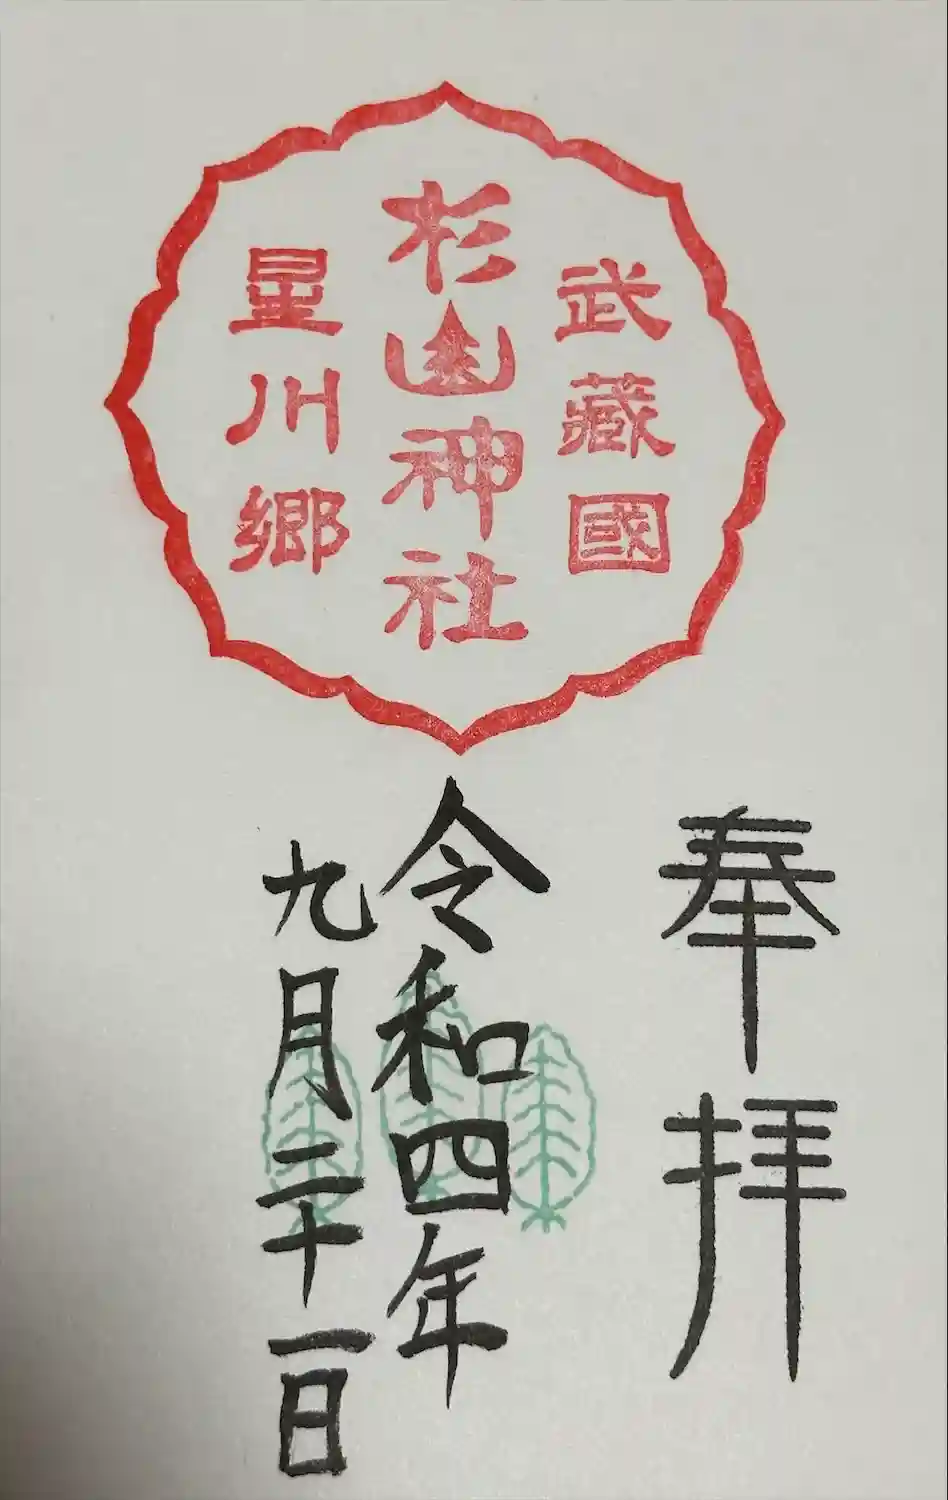 武藏國
杉山神社
星川郷
奉拝
令和四年
九月二十一日